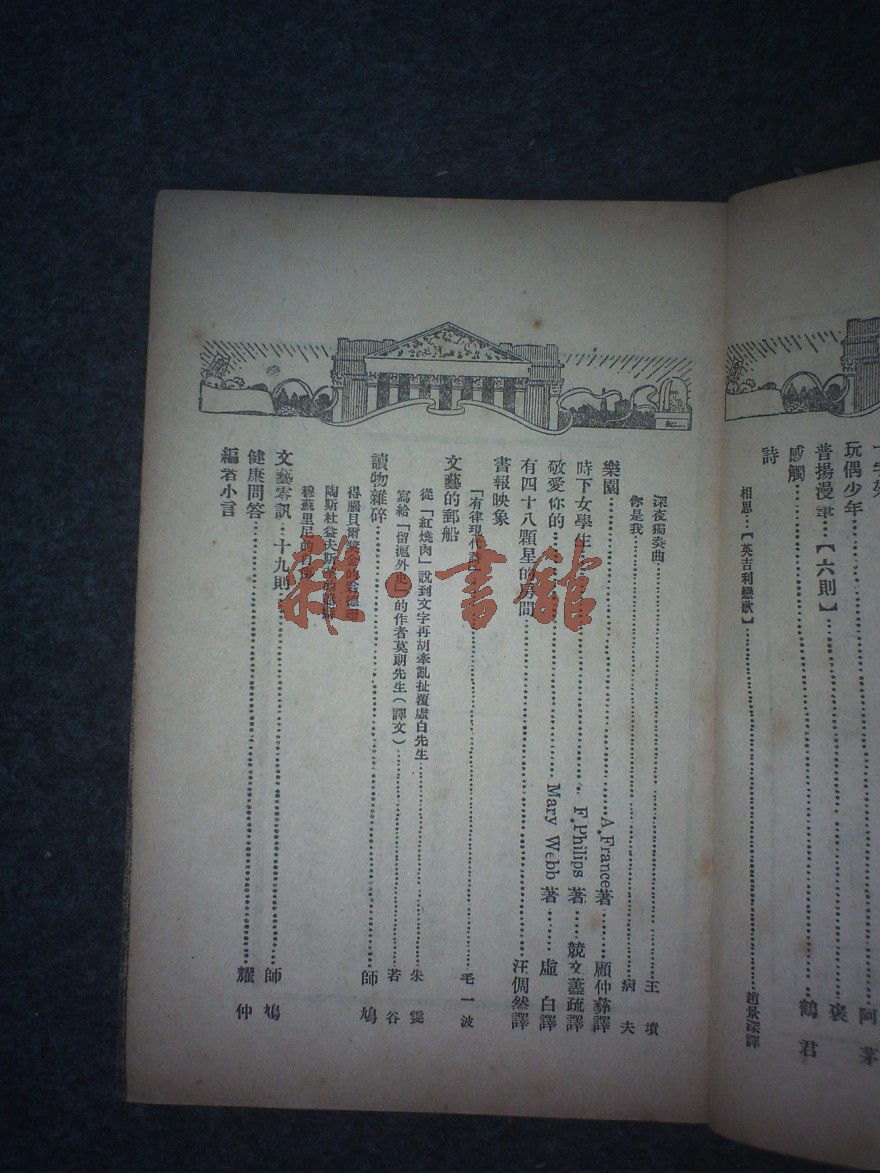 玩偶少年……………………阿茅
普揚漫筆【六則】……………………袞
感觸……………………鶴君
詩
相思…【英吉利戀歌】……………………趙景深譯
深夜獨奏曲……………………王墳
你是我……………………病夫
樂園……………………A. France著……顧仲彝譯
時下女學生……………………F. Philips著……競文藎疏譯
敬愛你的……………………Mary Webb著……虛白譯
有四十八顆星的房間……………………汪倜然譯
書報映象
「有律現代……………………毛一波
文藝的郵船
從「紅燒肉」說到文字再胡牽亂扯覆虛白先生……………………朱雯
寫給「留滬外史」的作者莫朗先生(譯文)……………………若谷
讀物雜碎……………………師鳩
得腦貝爾獎金
陶斯杜益夫斯
穆蘇里尼的
文藝零訊…十九則……………………師鳩
健康問答……………………耀仲
編者小言
雜·書館